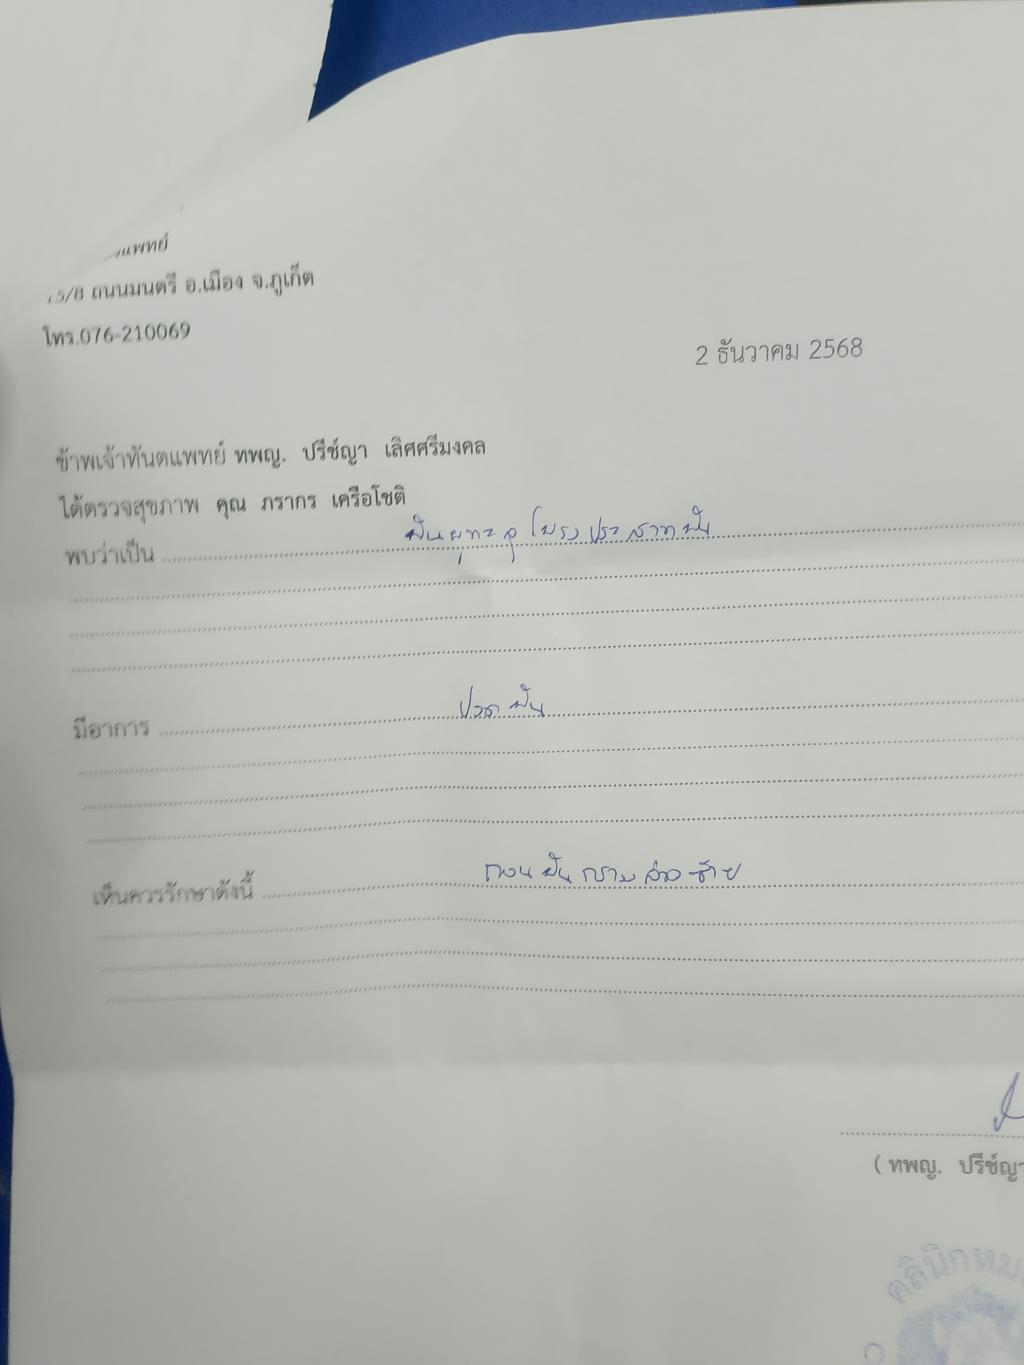 ถนนมนตรี อ.เมือง จ.ภูเก็ต
โทร.076-210069
2 ธันวาคม 2568
ข้าพเจ้าทันตแพทย์ ทพญ. ปรีช์ญา เลิศศรีมงคล
ได้ตรวจสุขภาพ คุณ ภรากร เครือโชติ
พบว่าเป็น ฟันผุทะลุโพรงประสาทฟัน
มีอาการ ปวดฟัน
เห็นควรรักษาดังนี้ ถอนฟันกรามล่างซ้าย
( ทพญ. ปรีช์ญา